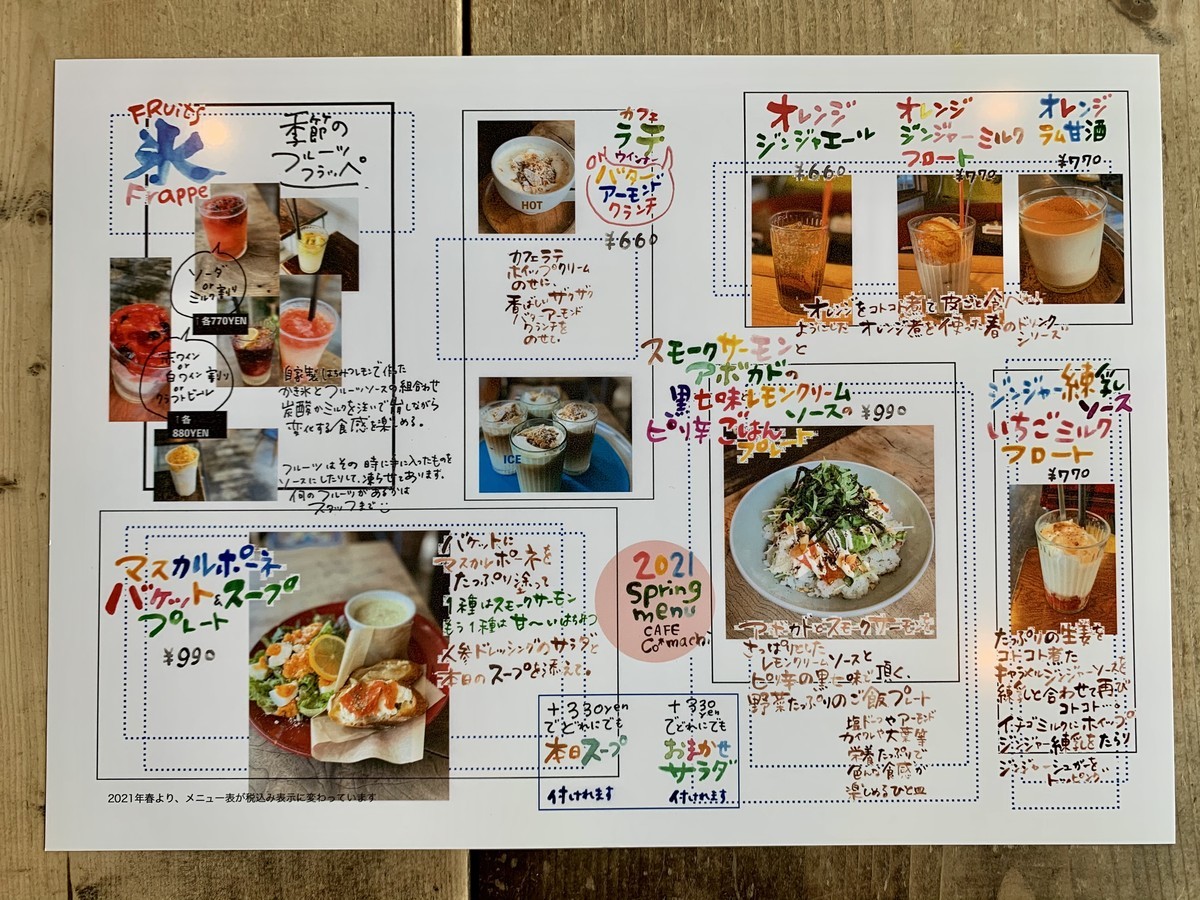 FRuits
氷
Frappe
季節の
フルーツ
フラッペ
ソーダ
or
ミルク割り
↑各770YEN
赤ワイン
or
白ワイン割り
or
クラフトビール
↑各
880YEN
自家製はちみつレモンで作った
かき氷とフルーツソースの組合わせ
炭酸かミルクを注いで崩しながら
変化する食感を楽しめる。
フルーツはその時に手に入ったものを
ソースにしたりして、凍らせてあります。
何のフルーツがあるかは
スタッフまで
カフェ
ラテ
ON ウインナー
バター
アーモンド
クランチ
¥660
HOT
カフェラテ
ホイップクリーム
のせに、
香ばしいザクザク
バターアーモンド
クランチを
のせて。
ICE
オレンジ
ジンジャエール
¥660
オレンジ
ジンジャーミルク
フロート
¥770
オレンジ
ラム甘酒
¥770
オレンジをコトコト煮て皮ごと食べれ
ようにした オレンジ煮を使った春のドリンク
シリーズ
スモークサーモンと
アボカドの
黒七味レモンクリーム
ソースの
ピリ辛ごはん
プレート
¥990
アボカドとスモークサーモンを
さっぱりとした
レモンクリームソースと
ピリ辛の黒七味で頂く、
野菜たっぷりのご飯プレート
塩ナッツやアーモンド
カイワレや大葉等
栄養たっぷりで
色んな食感が
楽しめるひと皿
ジンジャー練乳
ソース
いちごミルク
フロート
¥770
たっぷりの生姜を
コトコト煮た
キャラメルジンジャーソースを
練乳と合わせて再び
コトコト…。
イチゴミルクにホイップ
ジンジャー練乳をたらり
ジンジャーシュガーを
トッピング
マスカルポーネ
バケット&スープ
プレート
¥990
バケットに
マスカルポーネを
たっぷり塗って
1種はスモークサーモン
もう1種は甘〜いはちみつ
人参ドレッシングのサラダと
本日のスープを添えて。
2021
spring
menu
CAFE
Co*machi
+330yen
でどれにでも
本日スープ
付けれます
+330
yen
でどれにでも
おまかせ
サラダ
付けれます
2021年春より、メニュー表が税込み表示に変わっています